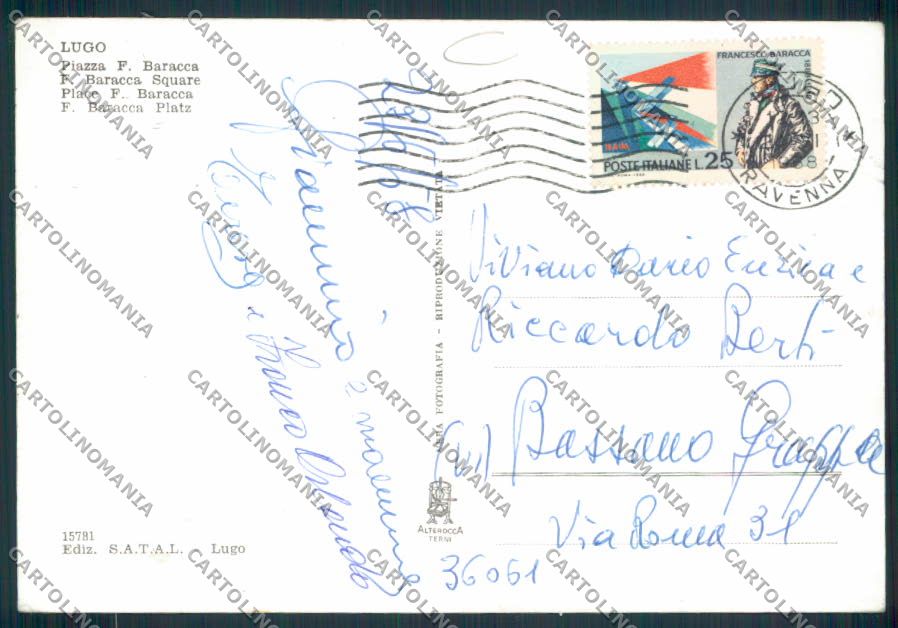 LUGO
Piazza F. Baracca
F. Baracca Square
Place F. Baracca
F. Baracca Platz
FRANCESCO BARACCA
ITALIA
POSTE ITALIANE L. 25
RAVENNA
Viviano Dario Enzina e
Riccardo Berti
(VI) Bassano Grappa
Via Roma 31
36061
Giannino e mamma
VERA FOTOGRAFIA - RIPRODUZIONE VIETATA
ALTEROCCA
TERNI
15781
Ediz. S.A.T.A.L. Lugo
CARTOLINOMANIA